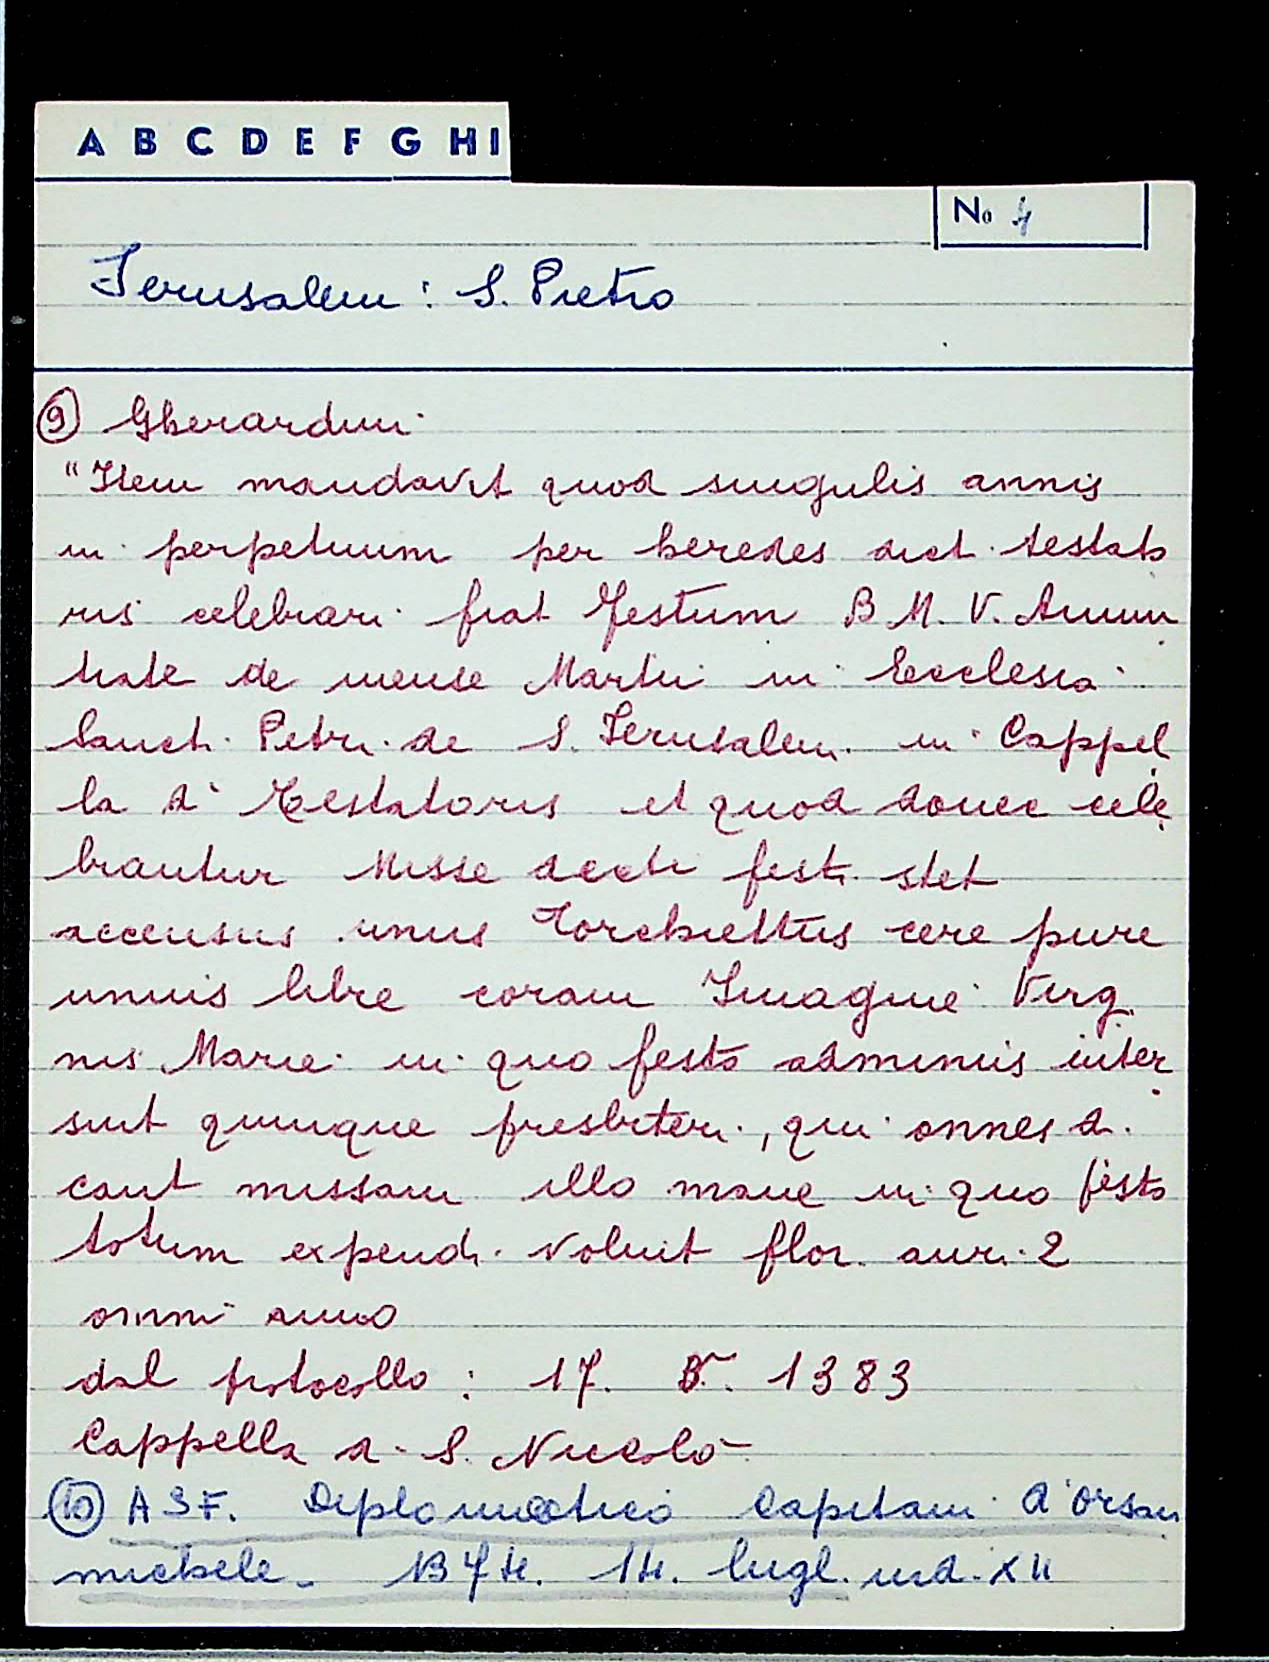 A B C D E F G H I
No 4
Jerusalem : S. Pietro
9 Gherardini
"Item mandavit quod singulis annis
in perpetuum per heredes dict. testato
ris celebrari fiat festum B M. V. Annun
tiate de mense Martii in Ecclesia
Sancti Petri de S. Jerusalem in Cappel
la di Testatoris et quod donec cele
brantur Misse dicti festi stet
accensus unus torchiettus cere pure
unius libre coram Imagine Virgi
nis Marie in quo festo adminus inter
sint quinque presbiteri, qui omnes di
cant missam illo mane in quo festo
totum expendi voluit flor. auri 2
omni anno
dal protocollo : 17. 1383
Cappella di S. Niccolò
10 ASF. Diplomatico Capitani d'Orsan
michele. 1374. 14. lugl. ind. XII